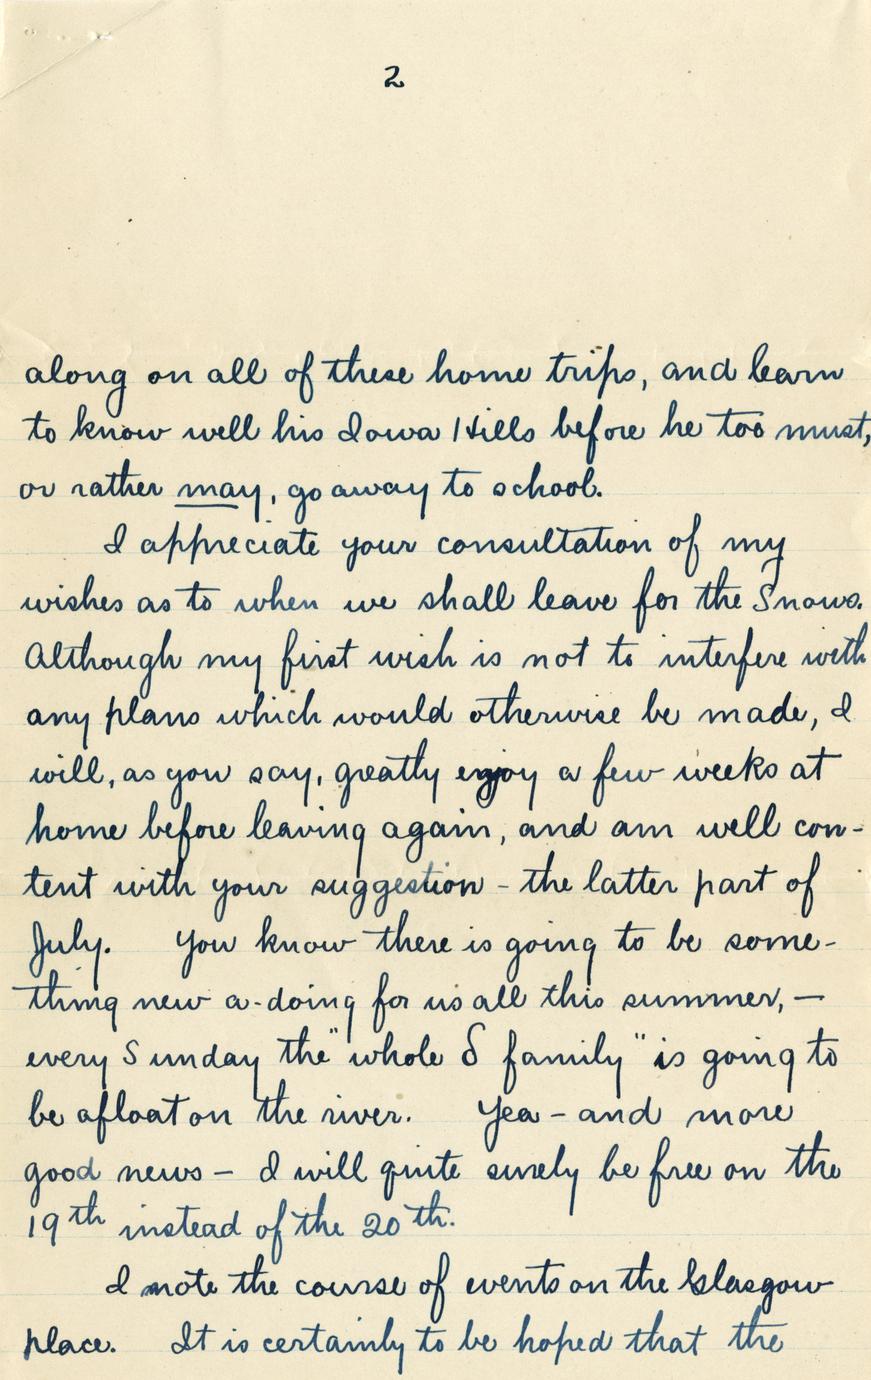 2
along on all of these home trips, and learn
to know well his Iowa Hills before he too must,
or rather may, go away to school.
I appreciate your consultation of my
wishes as to when we shall leave for the Snows.
Although my first wish is not to interfere with
any plans which would otherwise be made, I
will, as you say, greatly enjoy a few weeks at
home before leaving again, and am well con-
tent with your suggestion - the latter part of
July. You know there is going to be some-
thing new a-doing for us all this summer, —
every Sunday the "whole S family" is going to
be afloat on the river. Yea - and more
good news - I will quite surely be free on the
19th instead of the 20th.
I note the course of events on the Glasgow
place. It is certainly to be hoped that the